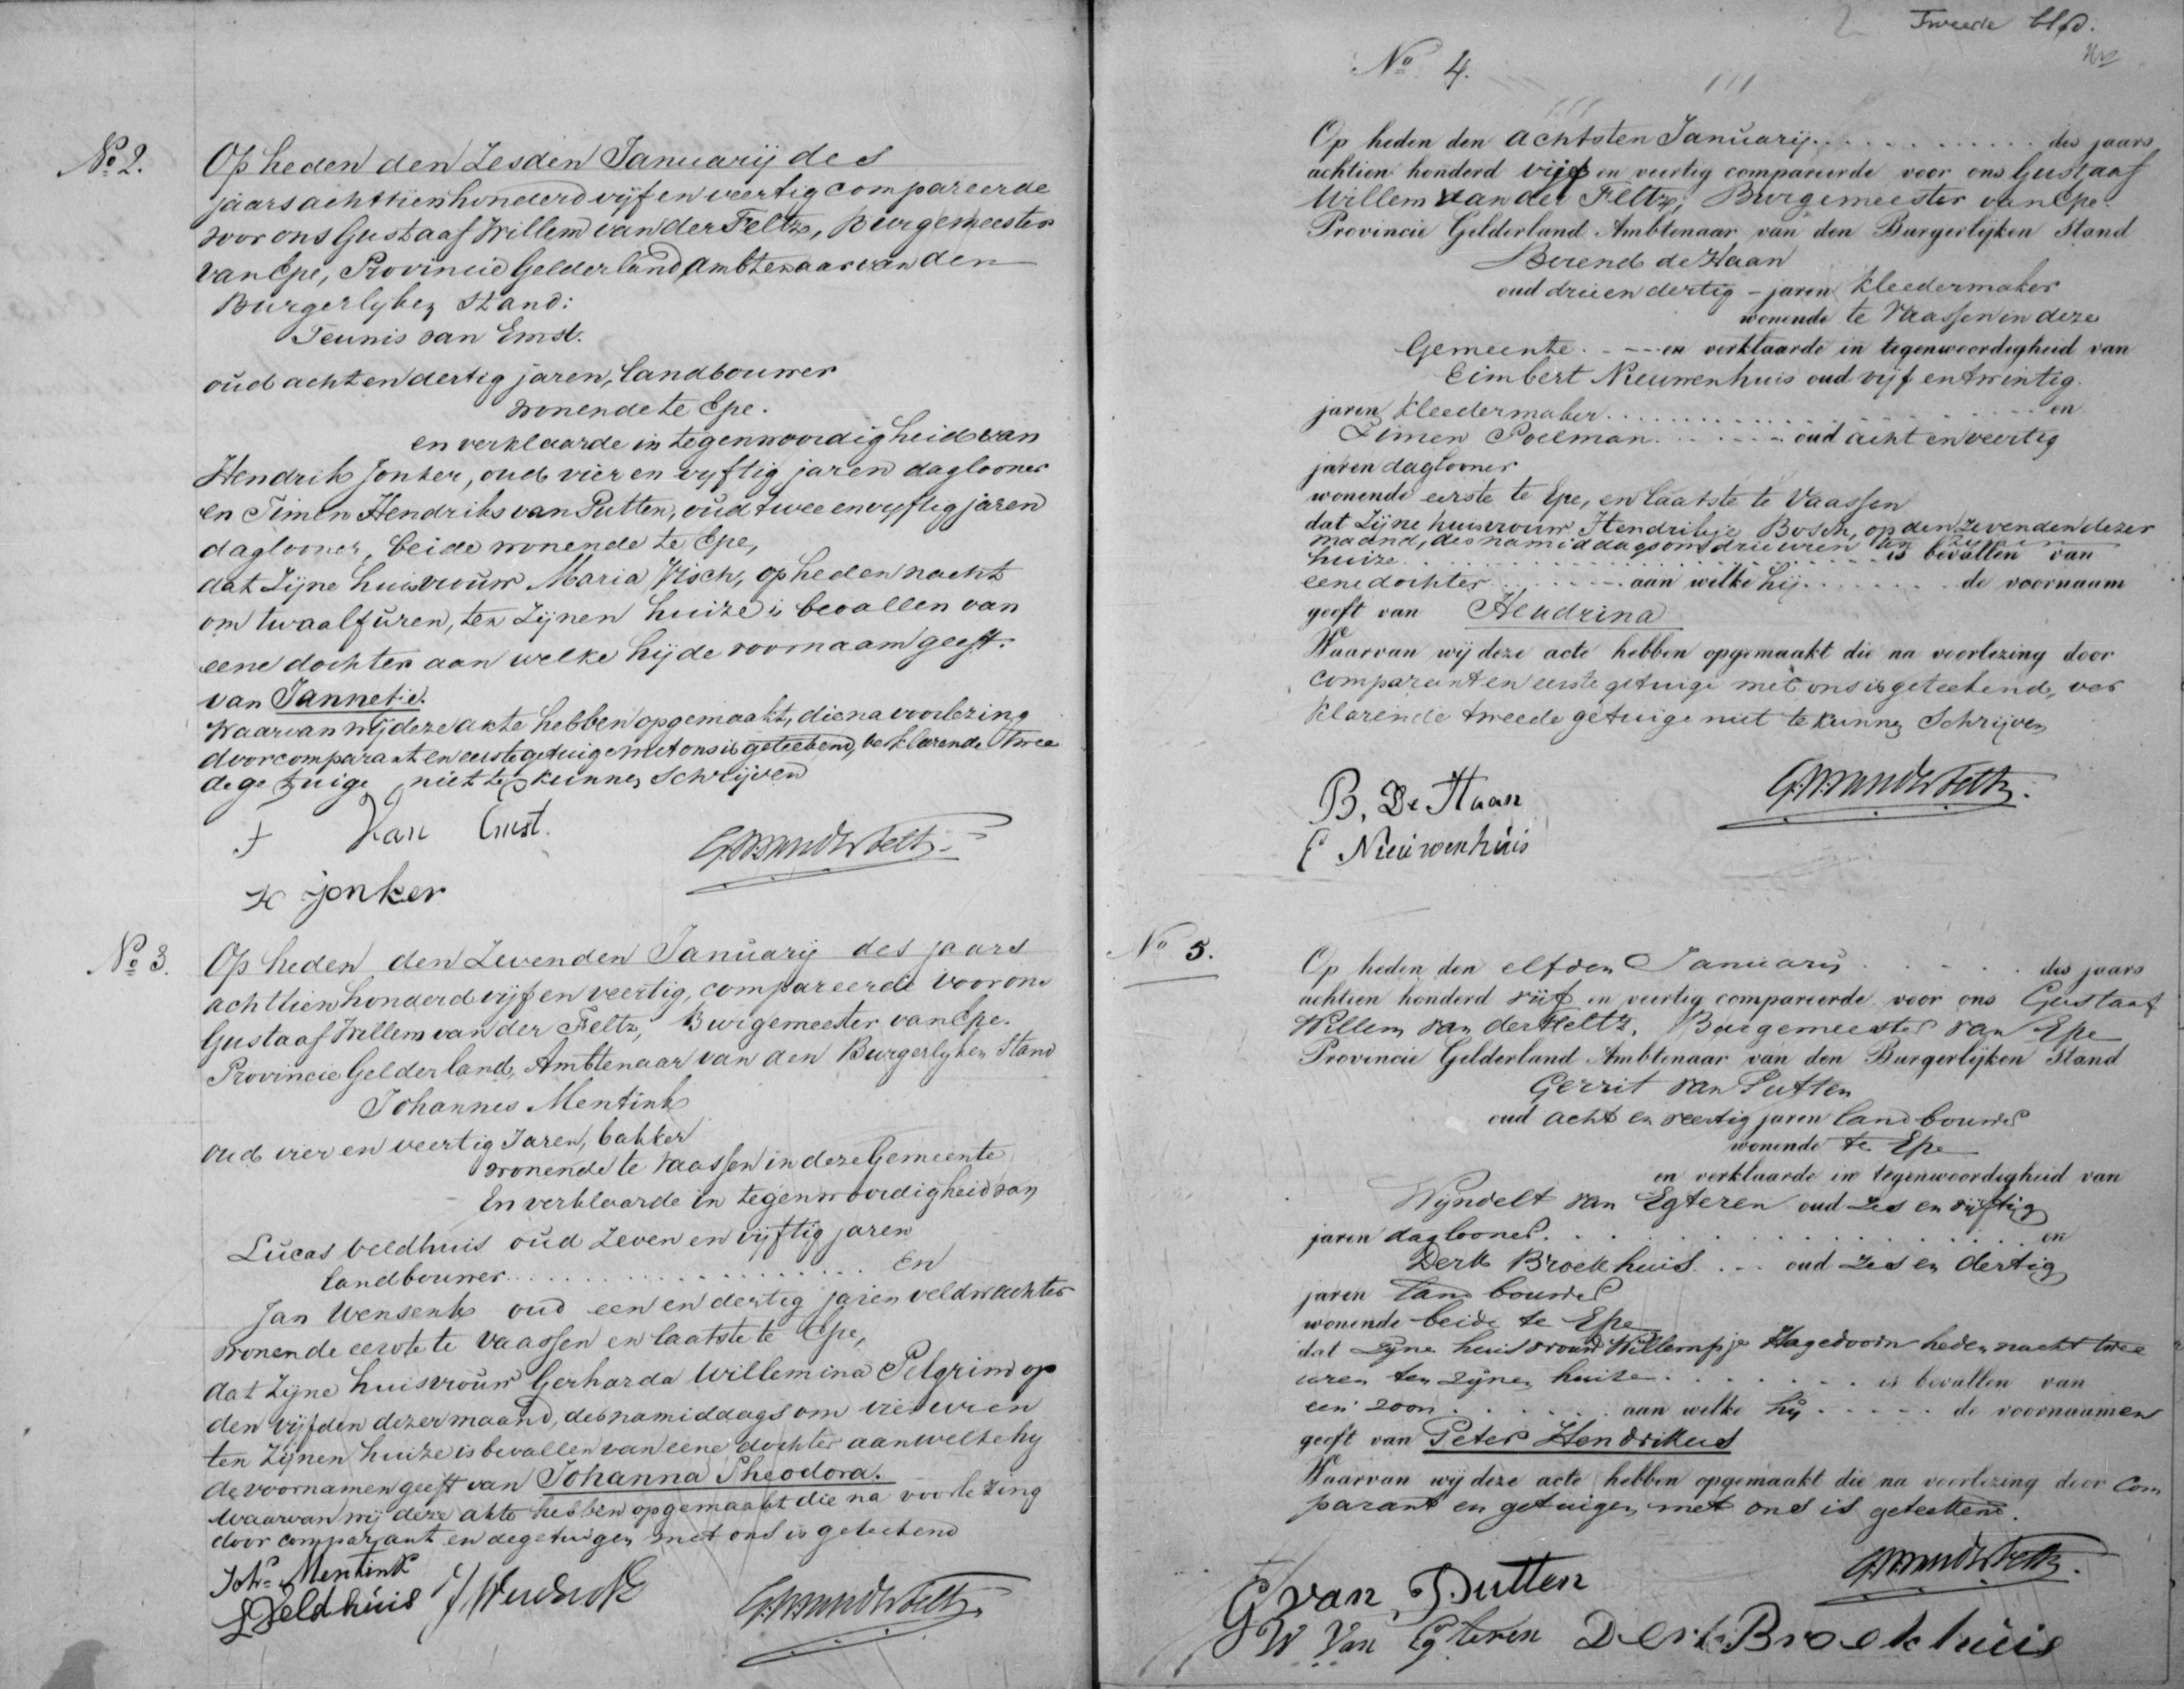 No. 2.
Op heden den Zesden Januarij des
jaars achttienhonderd vijf en veertig compareerde
voor ons Gustaaf Willem van der Feltz, Burgemeester
van Epe, Provincie Gelderland, Ambtenaar van den
Burgerlyken Stand:
Teunis van Emst.
oud acht en dertig jaren, landbouwer
wonende te Epe.
en verklaarde in tegenwoordigheid van
Hendrik Jonker, oud vier en vyftig jaren daglooner
en Timen Hendriks van Putten, oud twee en vyftig jaren
daglooner, beide wonende te Epe,
dat Zijne huisvrouw Maria Visch, op heden nacht
om twaalf uren, ten Zijnen huize is bevallen van
eene dochter aan welke hij de voornaam geeft.
van Jannetje.
Waarvan wij deze akte hebben opgemaakt, die na voorlezing
door comparant en eerste getuige met ons is geteekend, verklarende twee
de getuige niet te kunnen Schrijven
T Van Emst.
GWvanderFeltz.
H jonker
No. 3.
Op heden den Zevenden Januarij des jaars
achttienhonderd vijf en veertig, compareerde voor ons
Gustaaf Willem van der Feltz, Burgemeester van Epe.
Provincie Gelderland, Ambtenaar van den Burgerlyken Stand
Johannes Mentink
oud vier en veertig Jaren, bakker
wonende te Vaassen in deze Gemeente
En verklaarde in tegenwoordigheid van
Lucas Veldhuis oud Zeven en vijftig jaren
landbouwer . . . . . . . . . . en
Jan Wensenk oud een en dertig jaren veldwachter
wonende eerste te Vaassen en laatste te Epe,
dat Zijne huisvrouw Gerharda Willemina Pelgrim op
den Vijfden dezer maand, des namiddags om vier uren
ten Zijnen huize is bevallen van eene dochter aan welke hy
de voornamen geeft van Johanna Theodora.
Waarvan wij deze akte hebben opgemaakt die na voorlezing
door comparant en de getuigen met ons is geteekend
Johs. Mentink
L Veldhuis
GWvanderFeltz.
Tweede blad.
No. 4.
Op heden den achtsten Januarij . . . . . . . . des jaars
achtien honderd vijf en veertig compareerde voor ons Gustaaf
Willem van der Feltz, Burgemeester van Epe.
Provincie Gelderland Ambtenaar van den Burgerlijken Stand
Berend de Haan
oud drie en dertig - jaren kleedermaker
wonende te Vaassen in deze
Gemeente . - - - en verklaarde in tegenwoordigheid van
Eimbert Nieuwenhuis oud vijf en twintig
jaren kleedermaker . . . . . . . . . . en
Timen Poelman . . . . . . . oud acht en veertig
jaren daglooner
wonende eerste te Epe, en laatste te Vaassen
dat Zijne huisvrouw Hendrikje Bosch, op den zevenden dezer
maand, des namiddags om drie uren ten zynen
huize . . . . . . . . . . is bevallen van
eene dochter . . . . . . . aan welke hij . . . . . . . de voornaam
geeft van Hendrina
Waarvan wij deze acte hebben opgemaakt die na voorlezing door
Comparant en eerste getuige met ons is geteekend, ver
klarende tweede getuige niet te kunnen Schrijven
B. De Haan
GWvanderFeltz.
E Nieuwenhuis
No 5.
Op heden den elfden Januarij . . . . . des jaars
achtien honderd vijf en veertig compareerde voor ons Gustaaf
Willem van der Feltz, Burgemeester van Epe
Provincie Gelderland Ambtenaar van den Burgerlijken Stand
Gerrit van Putten
oud acht en veertig jaren landbouwer
wonende te Epe
en verklaarde in tegenwoordigheid van
Wijndelt van Egteren oud zes en vijftig
jaren daglooner . . . . . . . . . . en
Derk Broekhuis . . . oud zes en dertig
jaren landbouwer
wonende beide te Epe
dat Zijne huisvrouw Willempje Hagedoorn heden nacht twee
uren ten zijnen huize . . . . . . . is bevallen van
een zoon . . . . . . aan welke hij . . . . . de voornaamen
geeft van Peter Hendrikus
Waarvan wij deze acte hebben opgemaakt die na voorlezing door Com
parant en getuigen met ons is geteekend.
GWvanderFeltz.
G van Putten
W van Egteren Derk Broekhuis